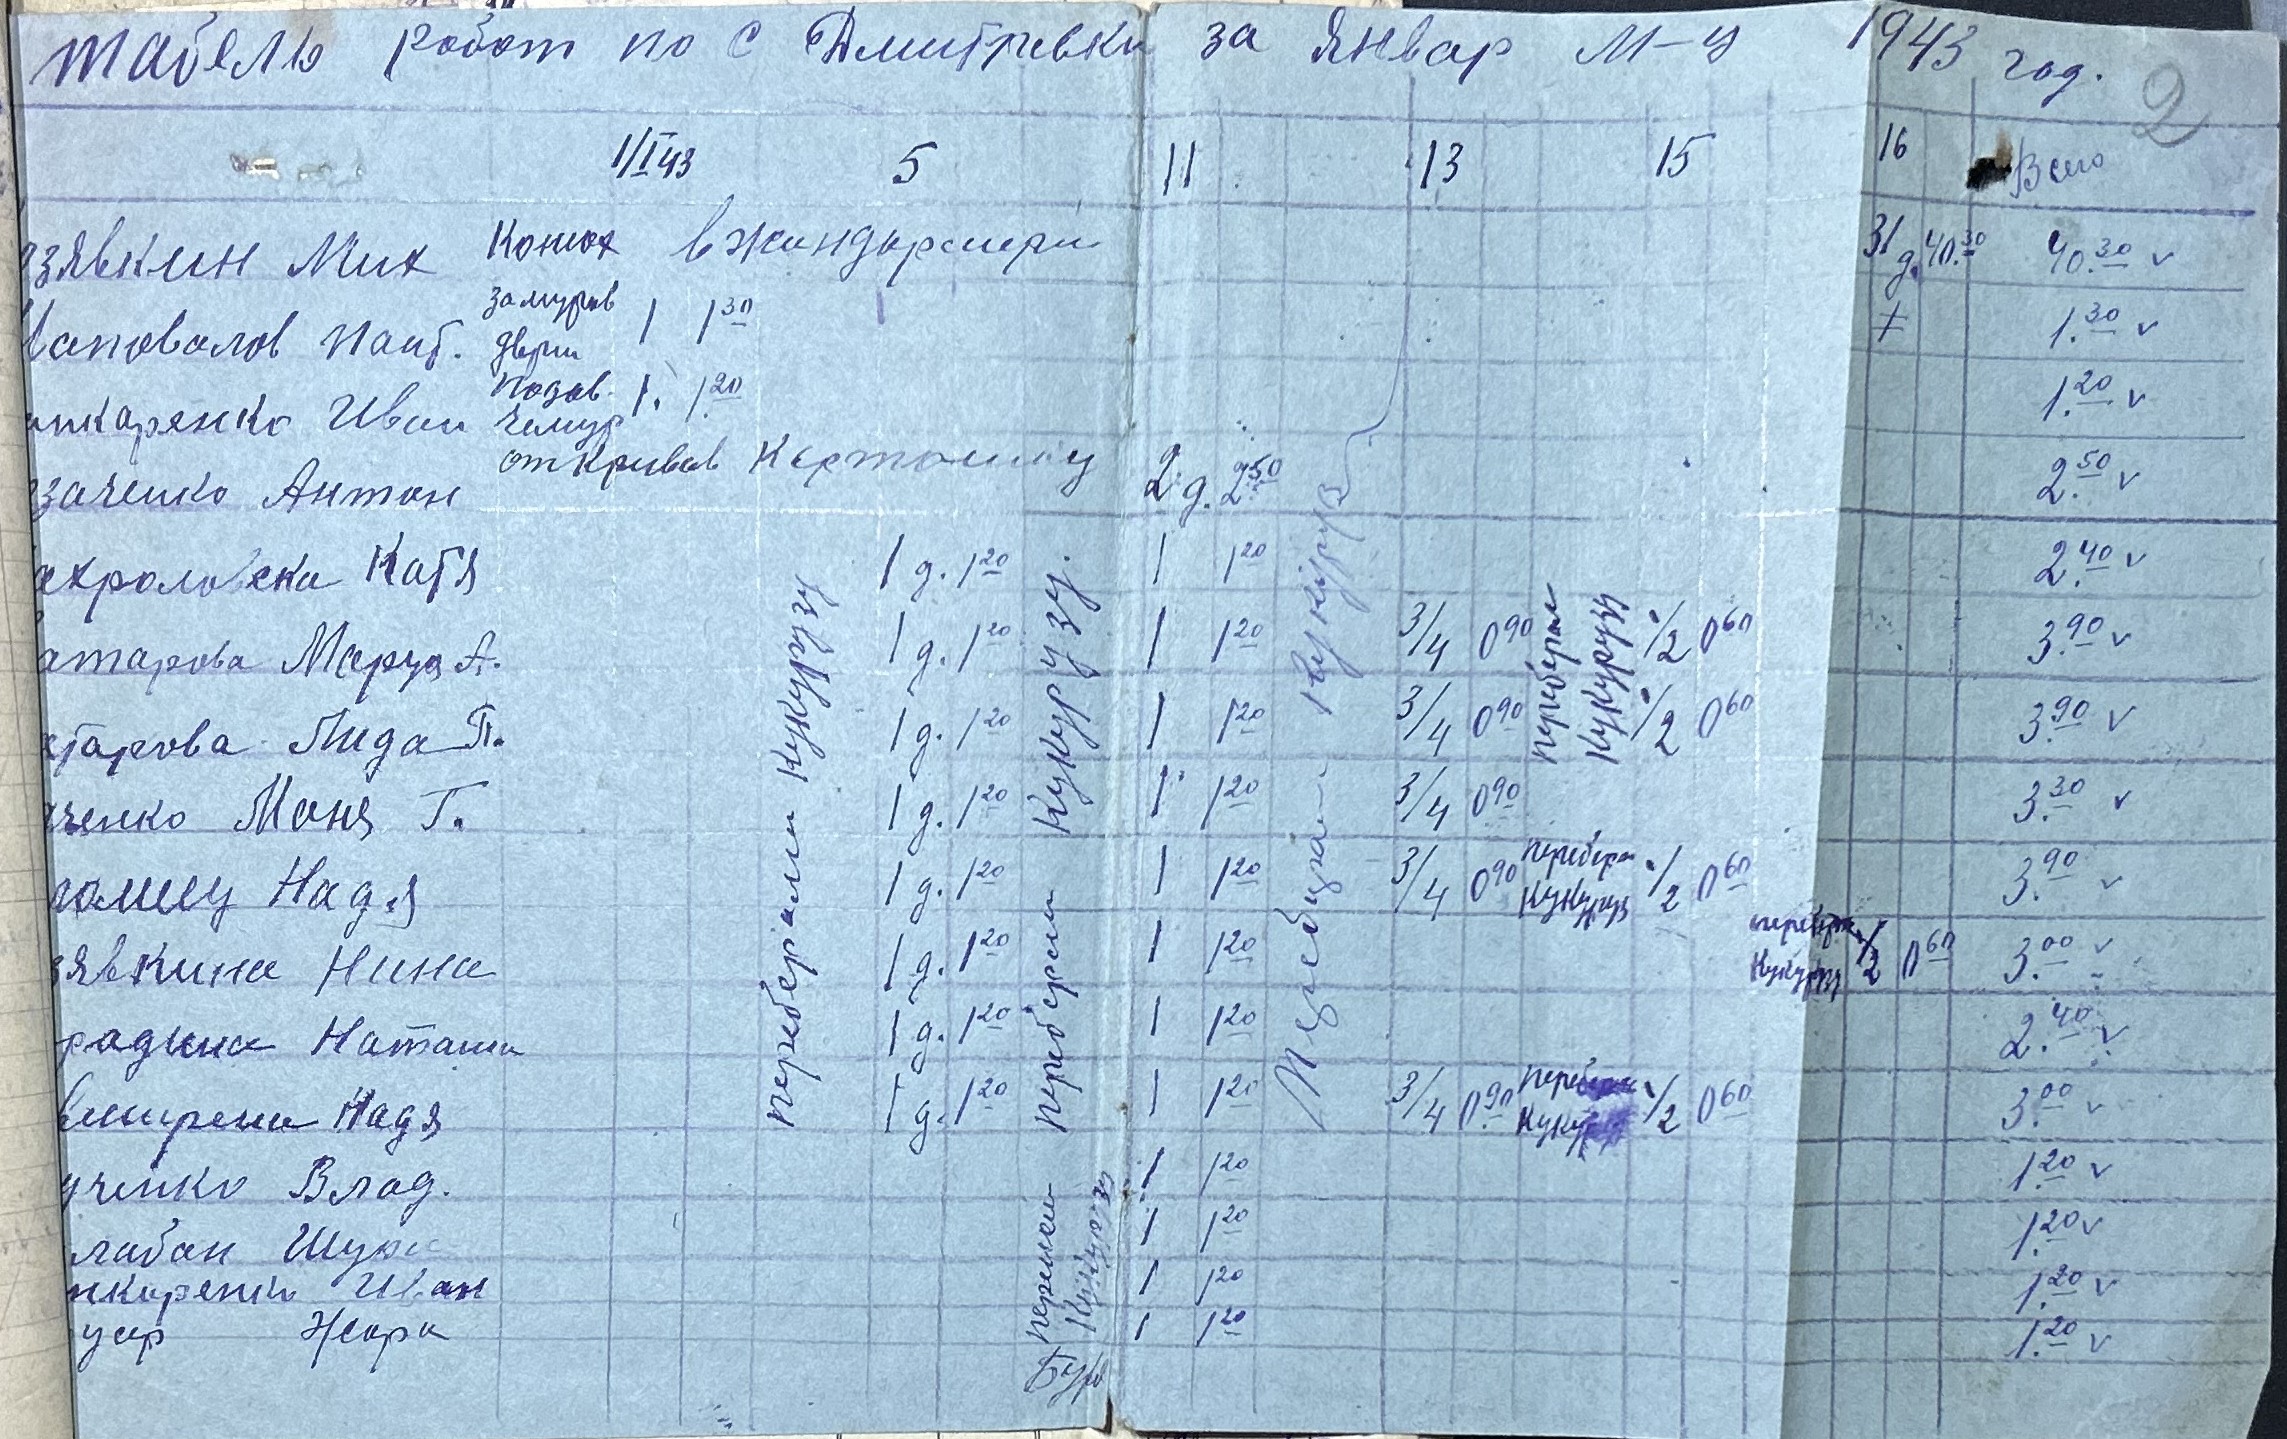 табель работ по с Дмитревки за Январ М-ц 1943 год.
2
1/I 43 5 11 13 15 16 Всего
зявкин Мих Конюх в жандармери 31 д. 40.30 40.30 v
аповалов Пант. замуров двери 1 1 30 1.30 v
нкаренко Иван 1. 1.20 1.20 v
заченко Антон откривав Картошку 2 д. 2.50 2.50 v
Катя 1 д. 1 20 1 1 20 2.40 v
атарова Маруся А. 1 д. 1 20 1 1 20 3/4 0 90 1/2 0 60 3.90 v
атарова Лида П. 1 д. 1 20 1 1 20 3/4 0 90 1/2 0 60 3.90 v
ченко Маня Г. 1 д. 1 20 1 1 20 3/4 0 90 3.30 v
Надя 1 д. 1 20 1 1 20 3/4 0 90 перебирали Кукурузу 1/2 0 60 3.90 v
зявкина Нина 1 д. 1 20 1 1 20 Кукурузу 1/2 0 60 3.00 v
Наташа 1 д. 1 20 1 1 20 2.40 v
Надя 1 д. 1 20 1 1 20 3/4 0 90 1/2 0 60 3.00 v
ученко Влад. 1 1 20 1.20 v
лабан Шура 1 1 20 1.20 v
нкаренко Иван 1 1 20 1.20 v
Жора 1 1 20 1.20 v
перебералы Кукурузу
перебрали Кукурузу.
кукуруз
перебрали
Кукурузу